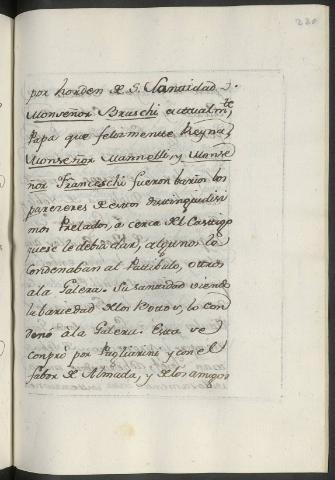 220
por horden de S. Santidad
Monseñor Bruschi actualm.te
Papa que felizmente Reyna,
Monseñor Mannelli, y Monse
ñor Franceschi fueron barios los
pareceres de estos distinguidisi
mos Prelados, á cerca del Castigo
que se le debia dar, algunos lo
Condenaban al Patibulo, otros
a la Galera. Su santidad viendo
la bariedad de los Votos, lo con
denó á la Galera. Esta se
conpró por Pagliarini y con el
fabor de Almada, y de los amigos